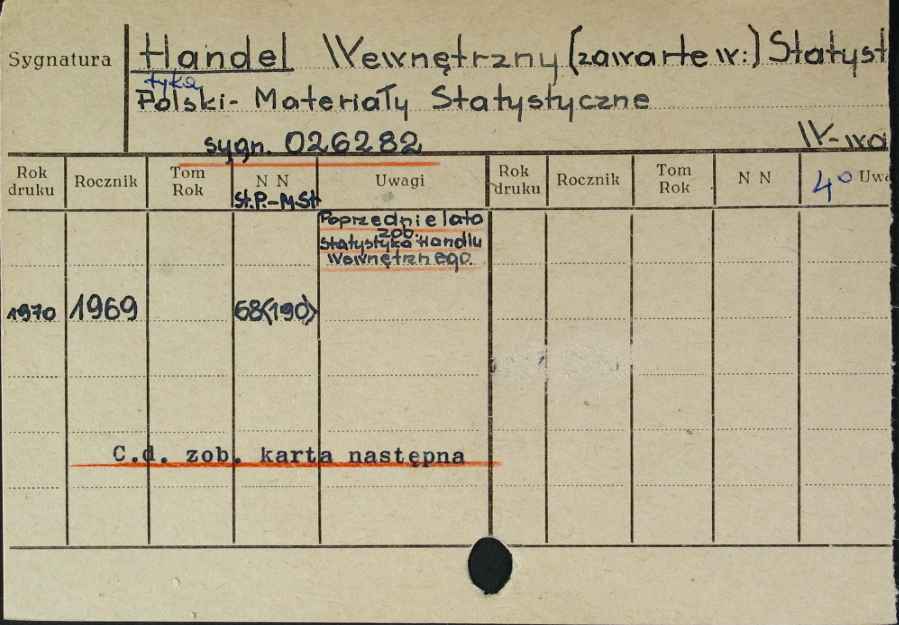 Sygnatura Handel Wewnętrzny (zawarte w:) Statyst
tyka
Polski - Materiały Statystyczne
sygn. 026282
W-wa
Rok druku Rocznik Tom Rok N N Uwagi Rok druku Rocznik Tom Rok N N Uwa
St.P.-M.St 4°
Poprzednie lata
zob.
Statystyka Handlu
Wewnętrznego.
1970 1969 68<190>
C.d. zob. karta następna